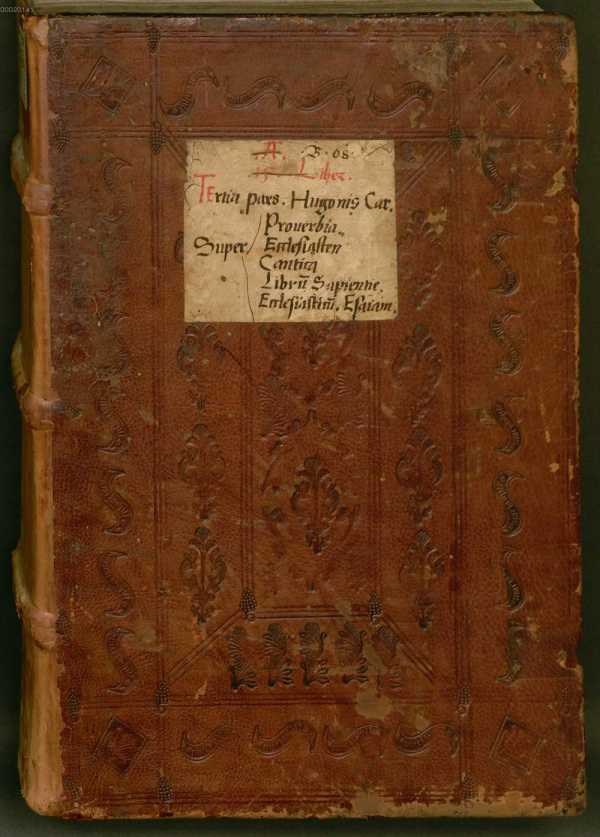 00020141
.A. .B. 08.
Liber.
Tertia pars. Hugonis Car.
Prouerbia
Super Ecclesiasten
Cantica
Librū Sapientie.
Ecclesiasticū. Esaiam.